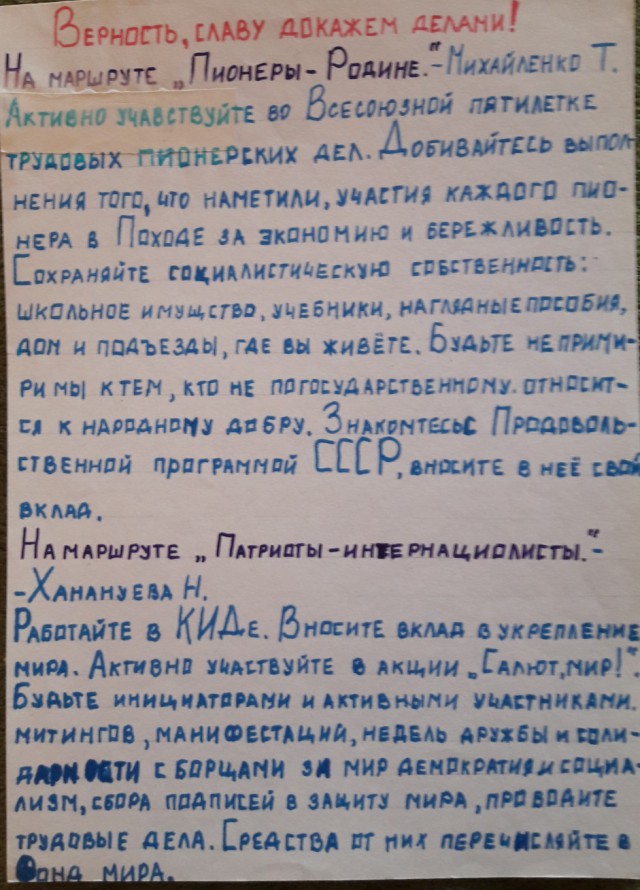 Верность, славу докажем делами!
На маршруте „Пионеры - Родине." - Михайленко Т.
Активно учавствуйте во Всесоюзной пятилетке
трудовых пионерских дел. Добивайтесь выпол-
нения того, что наметили, участия каждого пио-
нера в Походе за экономию и бережливость.
Сохраняйте социалистическую собственность:
школьное имущство, учебники, наглядные пособия,
дом и подъезды, где вы живёте. Будьте неприми-
римы к тем, кто не погосударственному. относит-
ся к народному добру. Знакомтесьс Продоволь-
ственной программой СССР, вносите в неё свой
вклад.
На маршруте „Патриоты - интернациолисты." -
- Ханануева Н.
Работайте в КИДе. Вносите вклад в укрепление
мира. Активно участвуйте в акции „Салют, мир!".
Будьте инициаторами и активными участниками.
митингов, манифестаций, недель дружбы и соли-
дарности с борцами за мир демократия и социа-
лизм, сбора подписей в защиту мира, проводите
трудовые дела. Средства от них перечисляйте в
Фонд мира.